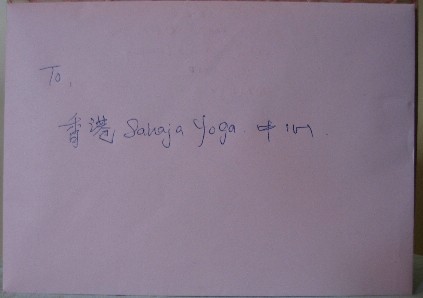 To,
香港 Sahaja Yoga 中心.